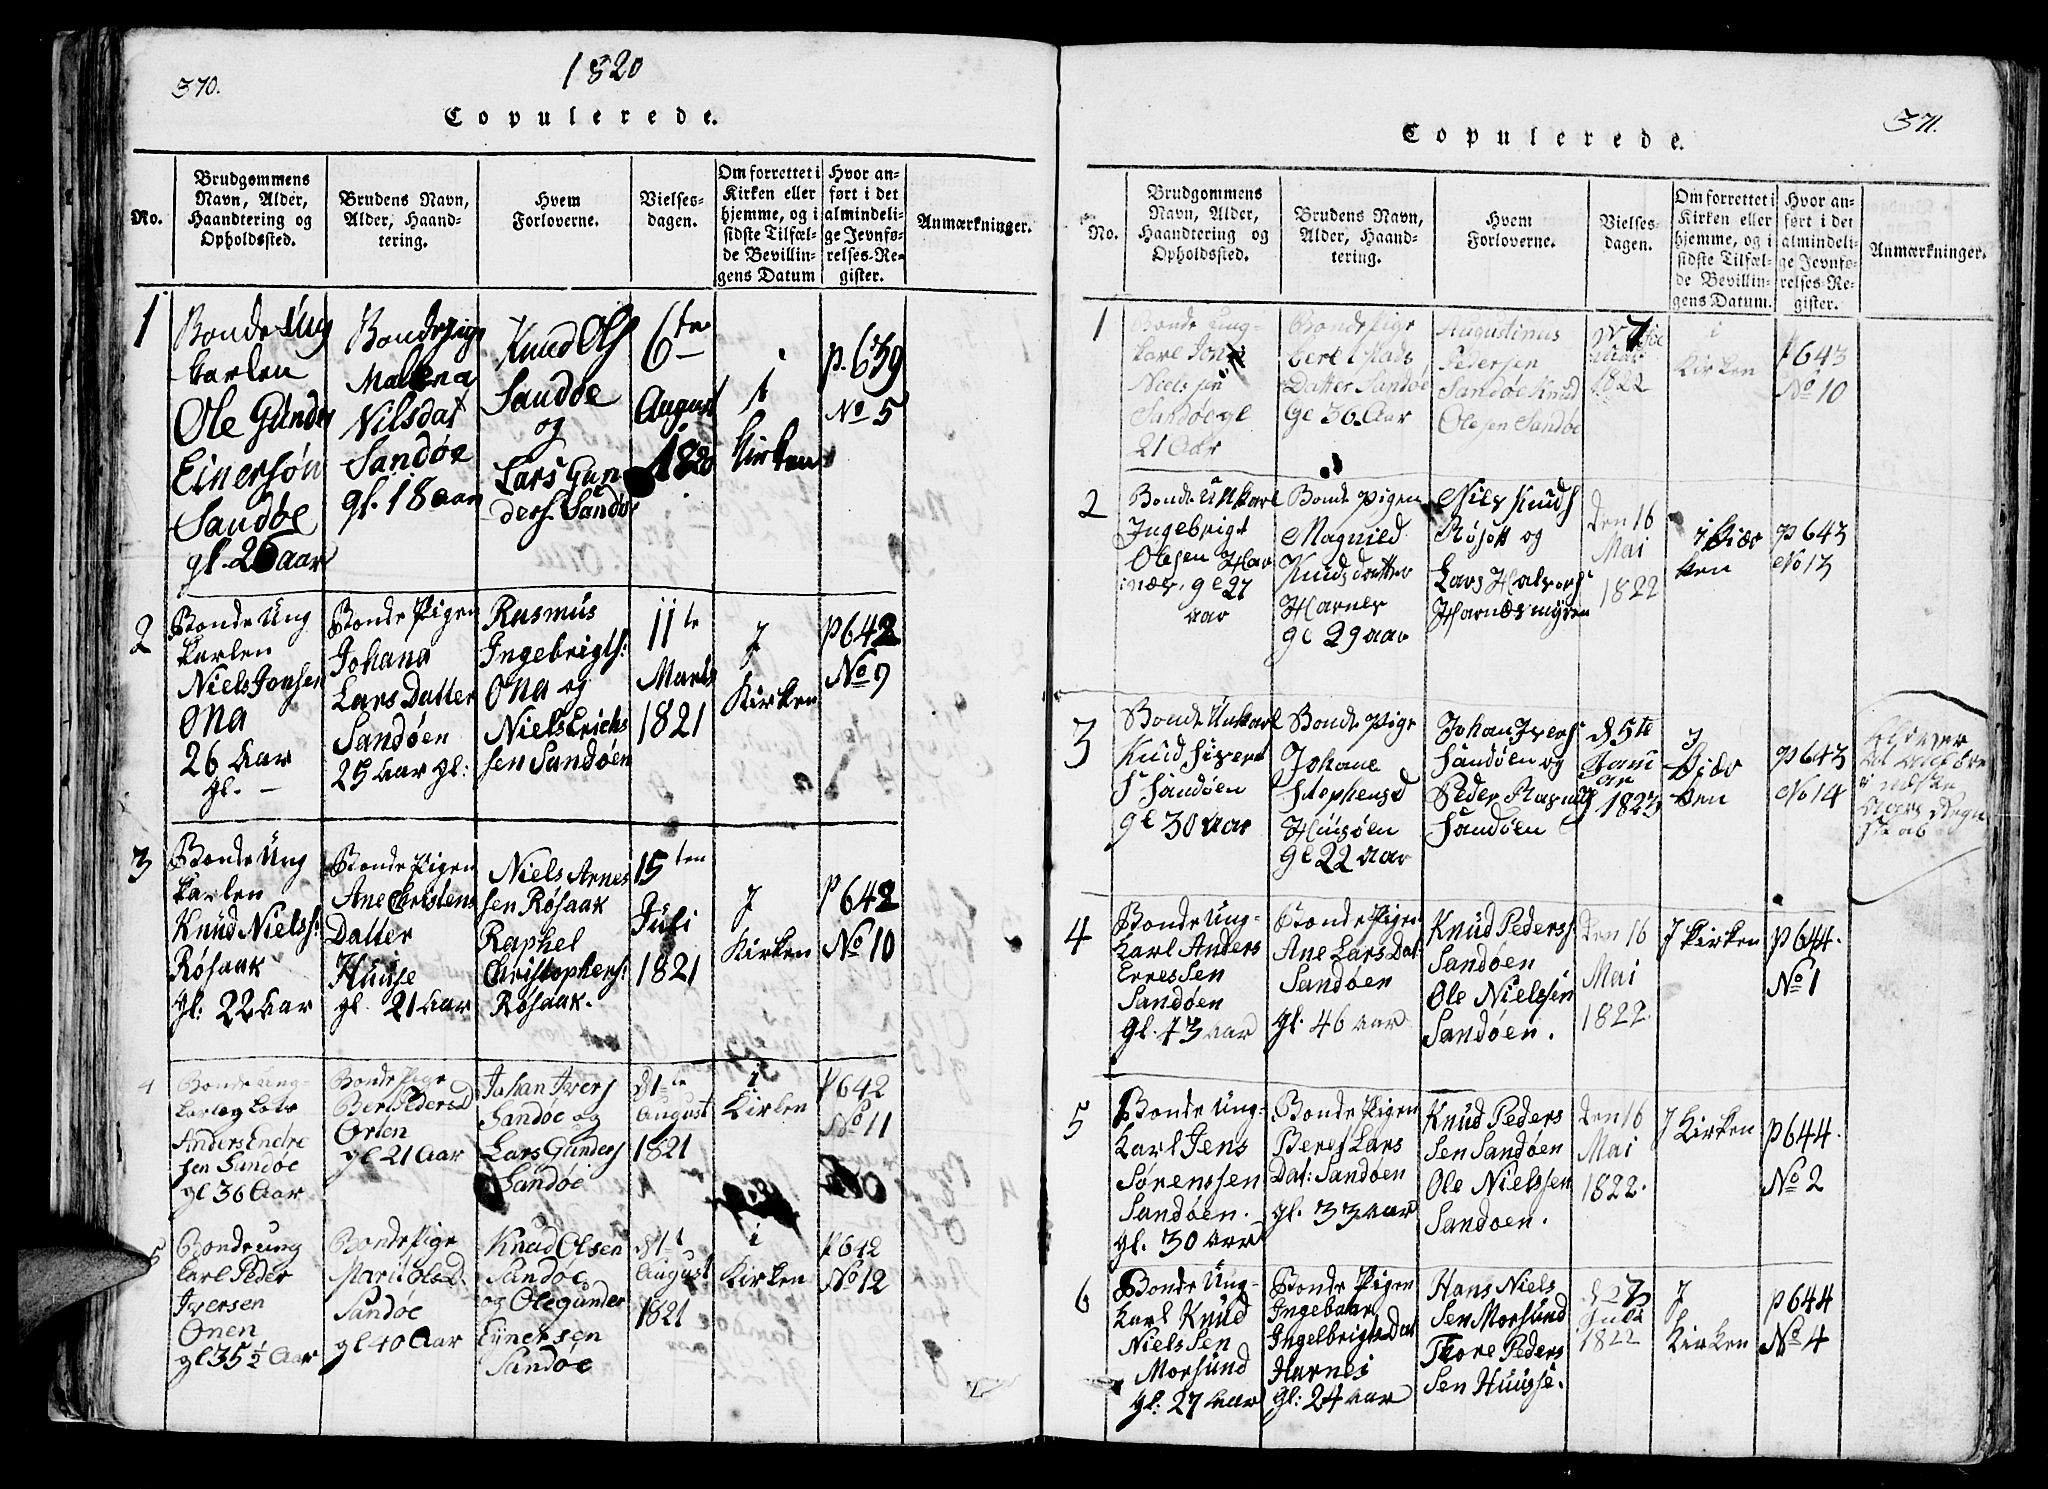 370.
1820
Copulerede.
No.
Brudgommens
Navn, Alder,
Haandtering og
Opholdssted.
Brudens Navn,
Alder, Haand-
tering.
Hvem
Forloverne.
Vielses-
dagen.
Om forrettet i
Kirken eller
hjemme, og i
sidste Tilfæl-
de Bevillin-
gens Datum
Hvor an-
ført i det
almindeli-
ge Jevnfø-
relses-Re-
gister.
Anmærkninger.
1
Bonde Ung
karlen
Ole Gunder
Einersøn
Sandøe
gl. 26 aar
Bondepige
Malena
Nilsdat
Sandøe
gl. 18 aar
Knud Ols
Sandøe
og
Lars Gun
ders. Sandøe
6te
August
1820
i
Kirken
p. 639
No 5
2
Bonde Ung
karlen
Niels Jonsen
Ona
26 Aar
gl. —
Bonde Pigen
Johana
Lars Datter
Sandøen
25 Aar gl:
Rasmus
Ingebrigts:
Ona og
Niels Erichs
sen Sandøen
11te
Marts
1821
J
Kirken
p 642
No 9
3
Bonde Ung
karlen
Knud Nielss:
Røsaak
gl: 22 Aar
Bonde Pigen
Ane Christens
Datter
Huuse
gl. 21 Aar
Niels Arnes
sen Røsaak
Raphel
Christophers:
Røsaak.
15ten
Juli
1821
J
Kirken
p 642
No 10
4
Bonde Ung-
Anders Endre
sen Sandøe
gl 36 Aar
Bonde Pige
Bert Pedersd
Orten
gl 21 Aar
Johan Ivers
Sandøe og
Lars Gunders
Sandøe
d 1te
August
1821
i
Kirken
p 642
No 11
5
Bonde ung
karl Peder
Iversen
Onen
gl 35 ½ Aar
Bonde Pige
Marit Ols D.
Sandøe
gl 40 Aar
Knud Olsen
Sandøe
og Ole Gunder
Eynersen
Sandøe
d 1t
August
1821
i
Kirken
p 642
No 12
371.
Copulerede.
No.
Brudgommens
Navn, Alder,
Haandtering og
Opholdssted.
Brudens Navn,
Alder, Haand-
tering.
Hvem
Forloverne.
Vielses-
dagen.
Om forrettet i
Kirken eller
hjemme, og i
sidste Tilfæl-
de Bevillin-
gens Datum.
Hvor an-
ført i det
almindeli-
ge Jevnfø-
relses-Re-
gister.
Anmærkninger.
1
Bonde Ung-
karl Jon
Nielssen
Sandøe gl
21 Aar
Bonde Pige
Datter Sandøe
gl 36 Aar
Augustinus
Pedersen
Sandøe Knud
Olesen Sandøe
1822
i
Kirken
p 643
No 10
2
Bonde Unkarl
Ingebrigt
Olesen Har
næs. gl 27
aar
Bonde Pigen
Magnild
Knudsdatter
Harnes
gl 29 aar
Niels Knuds
Røsok og
Lars Halvors
Harnesmyren
Den 16
Mai
1822
i Kir
ken
p 643
No 13
3
Bonde Unkarl
Knud Sivert
s Sandøen
gl 30 aar
Bonde Pige
Johane
Stephensd
Huusøen
gl 22 aar
Johan Ivers
Sandøen og
Peder Rasmus
Sandøen
d 5te
Janu
ar
1823
J
Kir
ken
p 643
No 14
4
Bonde Ung-
Karl Anders
Erressen
Sandøen
gl. 43 aar
Bonde Pigen
Ane Lars Dat
Sandøen
gl. 46 aar
Knud Peders
Sandøen
Ole Nielssen
Sandøen.
Den 16
Mai
1822.
J Kirken
p 644.
No 1
5
Bonde Ung-
Karl Jens
Sørenssen
Sandøen.
gl. 30 aar
Bonde Pigen
Beret Lars
Dat: Sandøen
gl. 33 aar
Knud Peders
sen Sandøen
Ole Nielssen
Sandøen.
Den 16
Mai
1822.
J Kirken
p 644.
No 2
6
Bonde Ung-
Karl Knud
Nielssen
Morsund
gl: 27 aar
Bonde Pigen
Ingebaar
Ingelbrigts Dat
Harnes
gl: 24 aar
Hans Niels
sen Morsund
Thore Peders
sen Huusse.
d 27
Juli
1822
J
Kirken
p 644
No 4